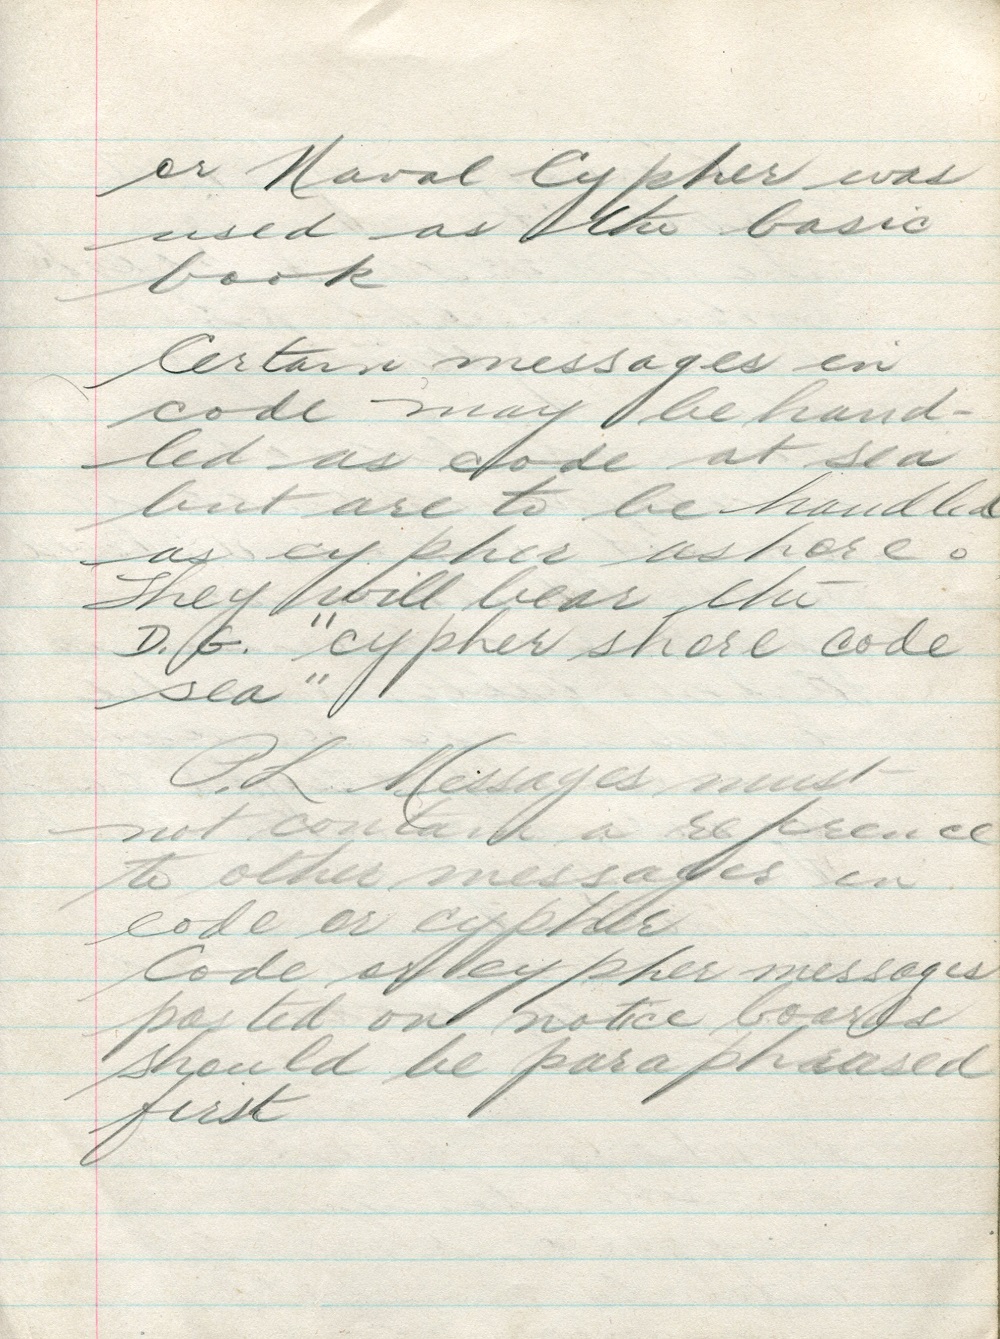 or Naval Cypher was
used as the basic
book
Certain messages in
code may be hand-
led as code at sea
but are to be handled
as cypher ashore.
They will bear the
D. G. "cypher shore code
sea"
P.L. Messages must
not contain a reference
to other messages in
code or cypher
Code or cypher messages
posted on notice boards
should be paraphraased
first